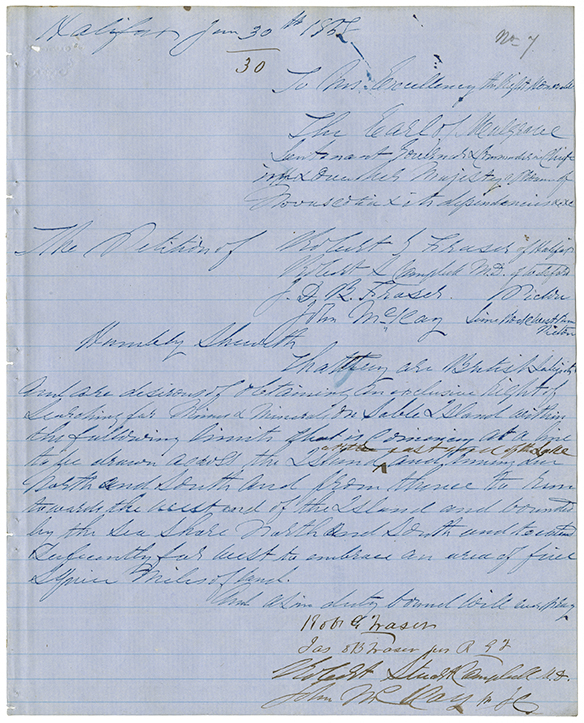 Halifax Jan 30th 1862
30
No 7
To His Excellency the Right Honorable
The Earl of Mulgrave
Lieutenant Governor & Commander in Chief
in & over her Majestys
Novascotia & its dependencies &c &c
The Petition of Robert G Fraser of Halifax
Robert S Campbell M.D. of
J. D. B. Fraser. Pictou
John McKay
Pictou
Humbly Sheweth
That they are British Subjects
and are desirous of obtaining an exclusive Right of
Searching for Mines & Minerals on Sable Island within
the following limits that is Comencing at a line
to be drawn across the Island at the east of the Lake
North and South and from thence to Run
towards the west end of the Island and bounded
by the Sea Shore North and South and to extend
Sufficently far west to embrace an area of five
Square Miles of land.
And as in duty bound will ever pray
Robt G Fraser
Jas D B Fraser per R G F
Robert Campbell M.D.
John McKay